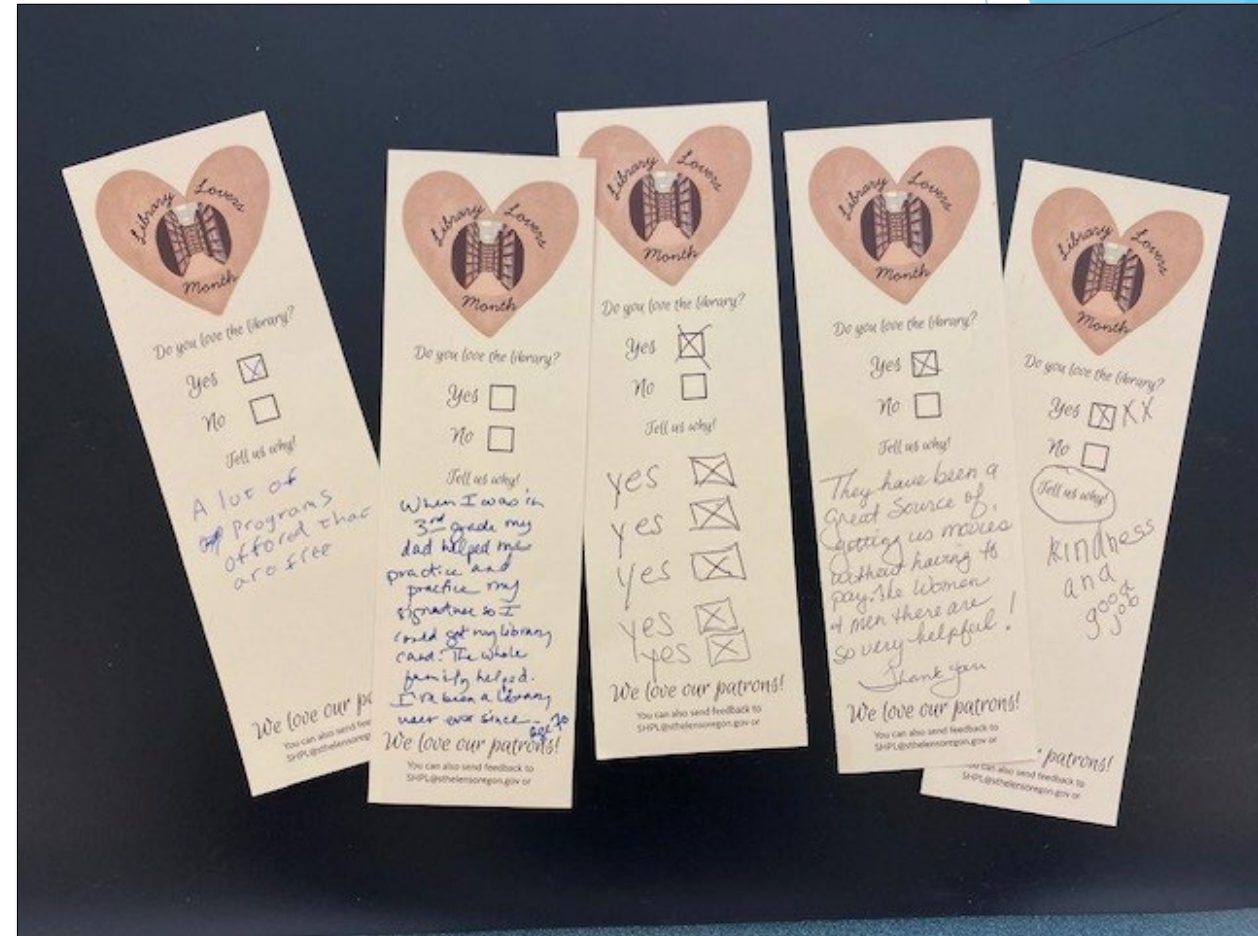 Library Lovers
Month
Do you love the library?
Yes
No
Tell us why!
A lot of
Programs
offored that
are free
We love our pa
You can also send fee
SHPL@sthelensoreg
Library Lovers
Month
Do you love the library?
Yes
No
Tell us why!
When I was in
3rd grade my
dad helped me
practice and
practice my
signature so I
could get my library
card. The whole
family helped.
I've been a library
user ever since - age 70
We love our patrons!
You can also send feedback to
SHPL@sthelensoregon.gov or
Library Lovers
Month
Do you love the library?
Yes
No
Tell us why!
yes
yes
yes
yes
yes
We love our patrons!
You can also send feedback to
SHPL@sthelensoregon.gov or
Library Lovers
Month
Do you love the library?
Yes
No
Tell us why!
They have been a
great Source of,
getting us movies
without having to
pay. The Women
& men there are
so very helpful!
Thank you
We love our patrons!
You can also send feedback to
SHPL@sthelensoregon.gov or
Library Lovers
Month
Do you love the library?
Yes XX
No
Tell us why!
kindness
and
good
job
patrons!
can also send feedback to
SHPL@sthelensoregon.gov or